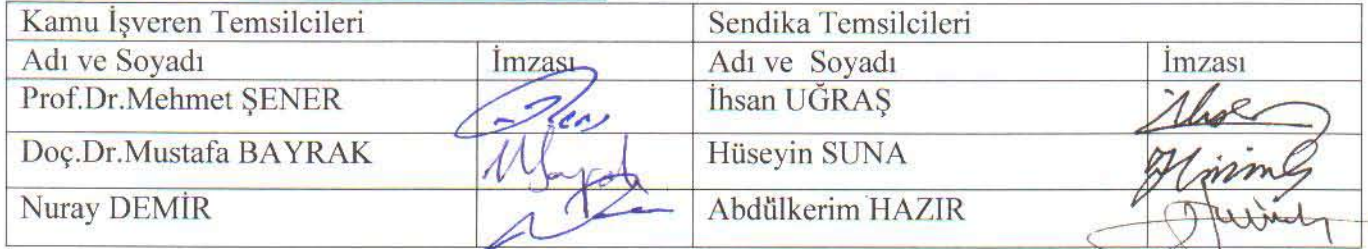 Kamu İşveren Temsilcileri Sendika Temsilcileri
Adı ve Soyadı İmzası Adı ve Soyadı İmzası
Prof.Dr.Mehmet ŞENER İhsan UĞRAŞ
Doç.Dr.Mustafa BAYRAK Hüseyin SUNA
Nuray DEMİR Abdülkerim HAZIR